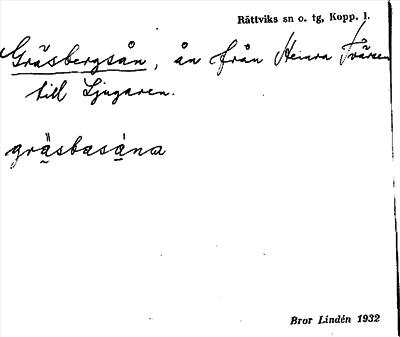 Rättviks sn o. tg, Kopp. l.
Gräsbergsån, ån från Heinra Tvärsen
till Ljugaren.
gräsbasána
Bror Lindén 1932